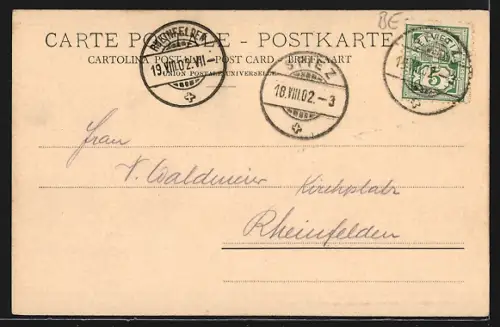 BE
CARTE POSTALE - POSTKARTE
CARTOLINA POSTALE - POST CARD - BRIEFKAART
UNION POSTALE UNIVERSELLE
RHEINFELDEN
19.VIII.02.VII-
SPIEZ
18.VIII.02.-3
5
Frau
V. Waldmeier Kirchplatz
Rheinfelden